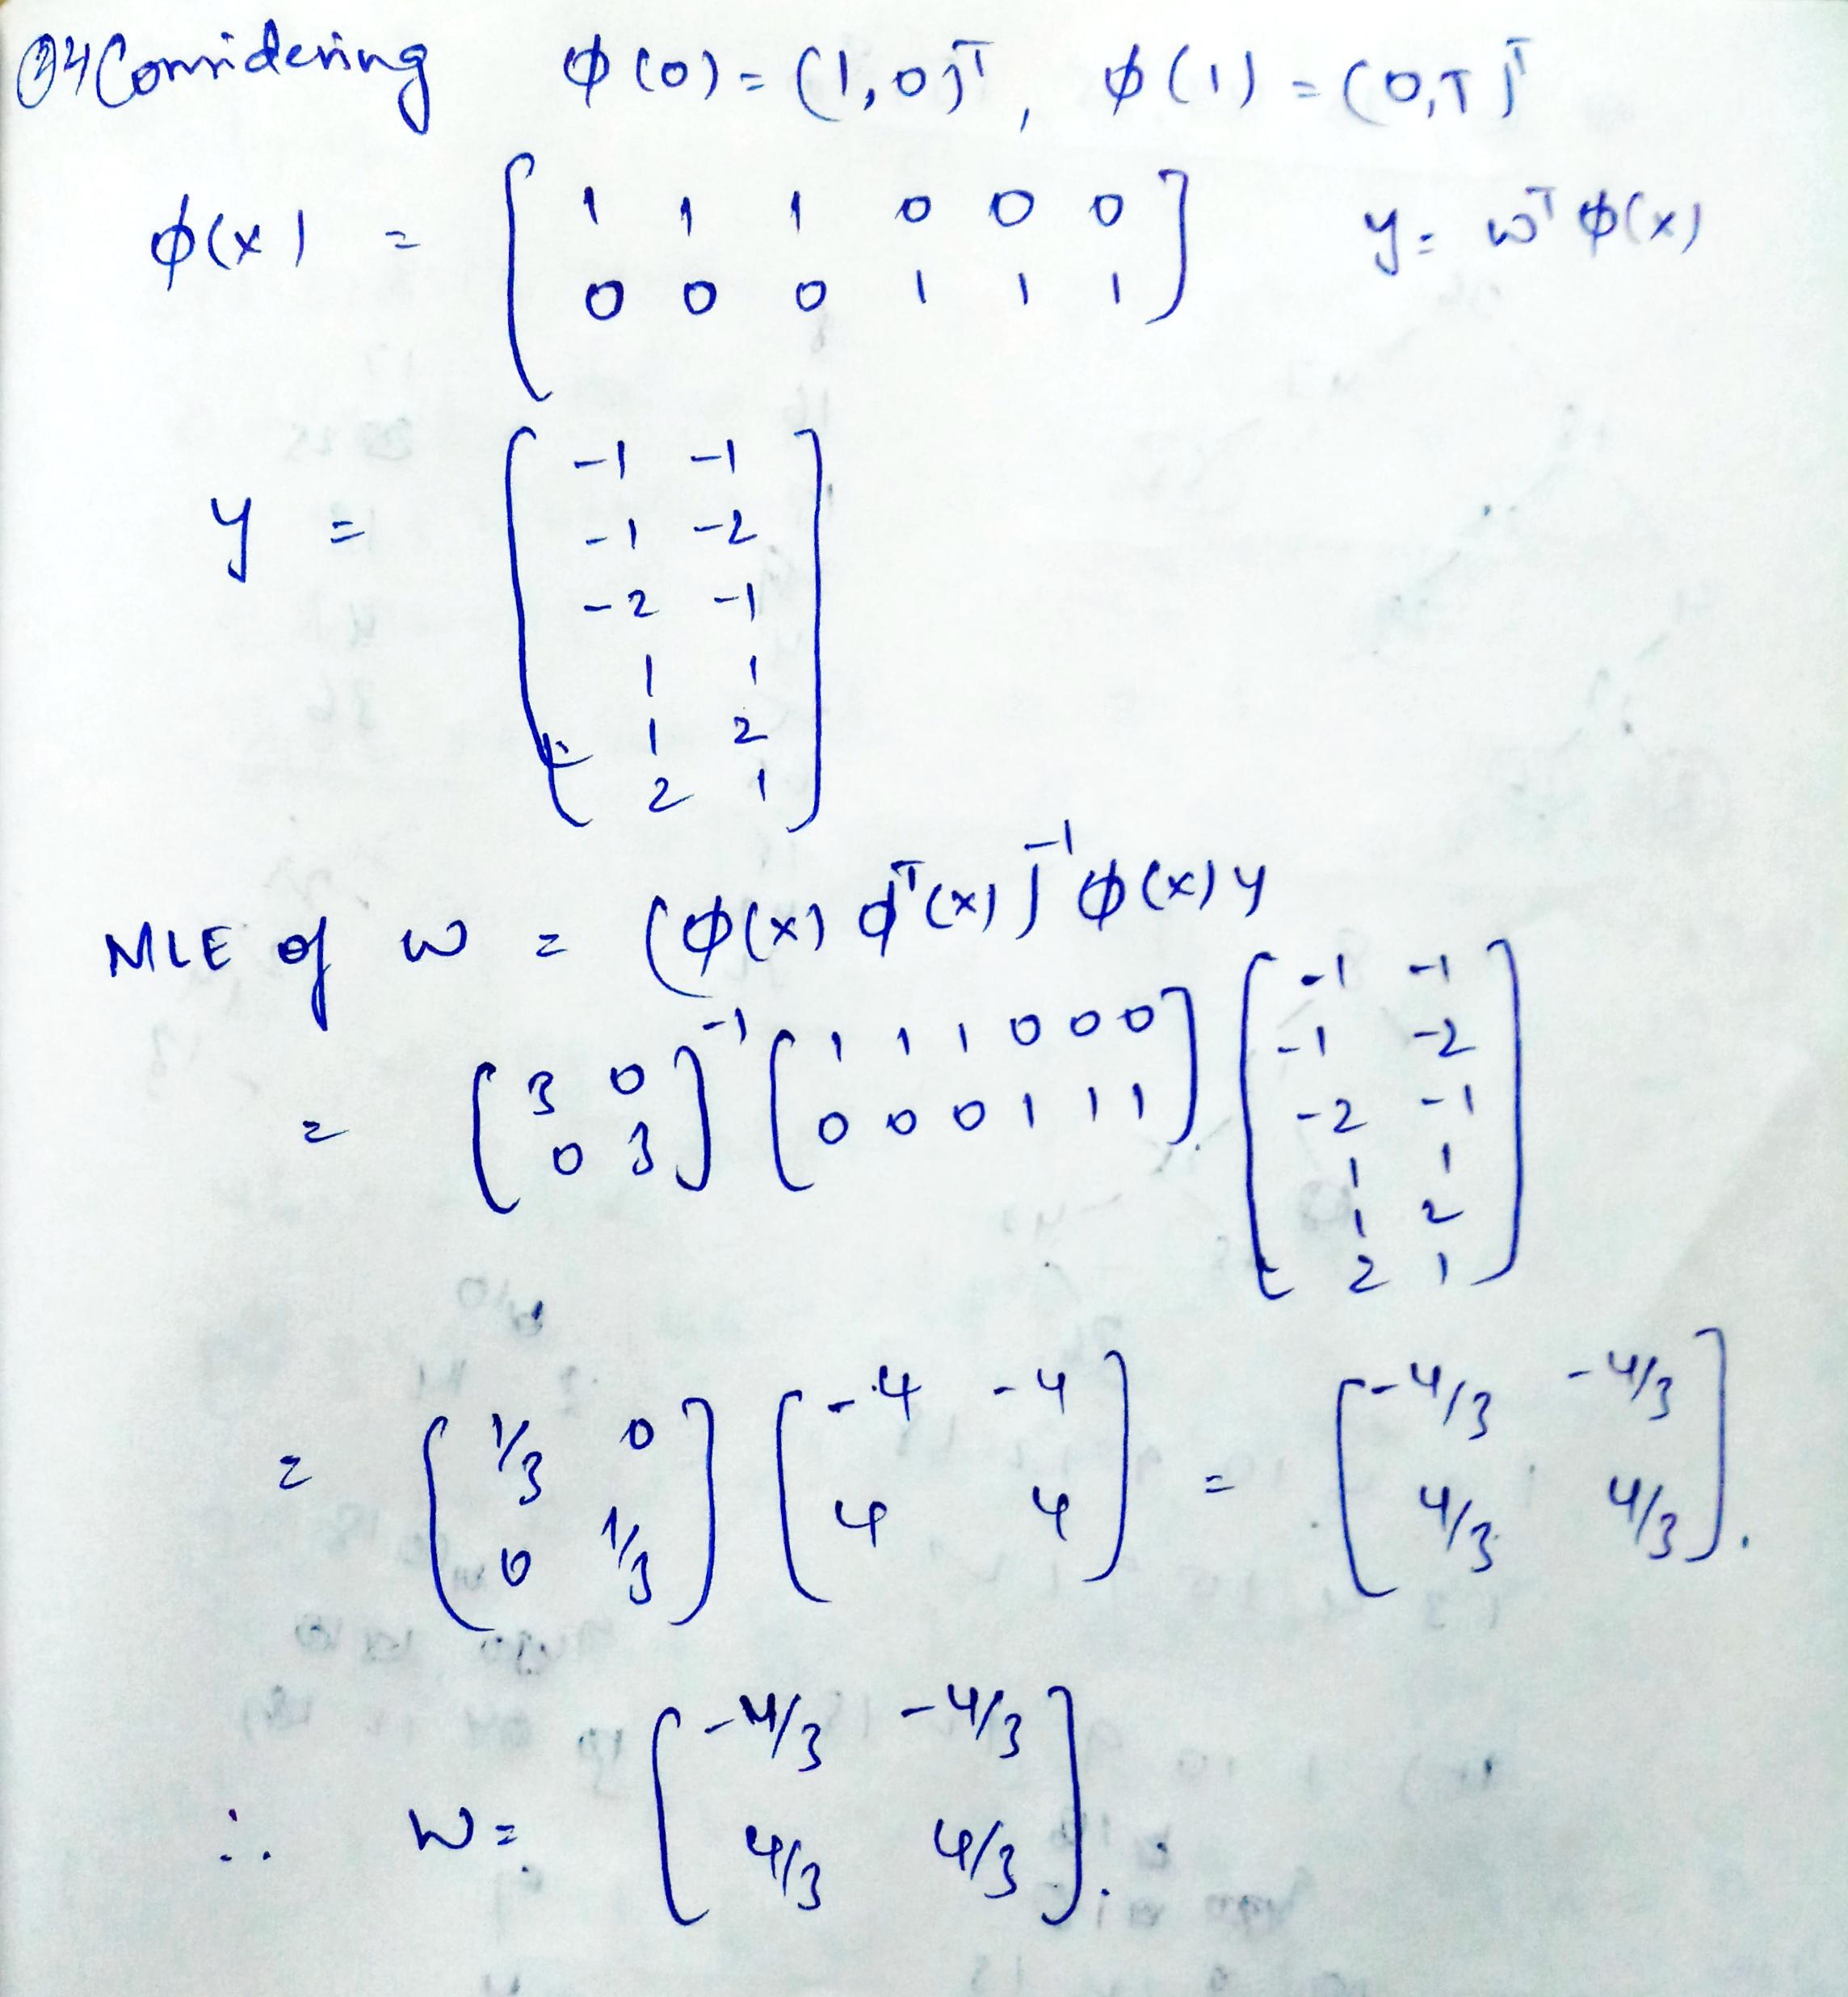 34 Considering φ(0) = (1,0)ᵀ, φ(1) = (0,T)ᵀ
φ(x) = [ 1 1 1 0 0 0
0 0 0 1 1 1 ] y = wᵀ φ(x)
y = [ -1 -1
-1 -2
-2 -1
1 1
1 2
2 1 ]
MLE of w = (φ(x) φᵀ(x))⁻¹ φ(x) y
= [ 3 0
0 3 ]⁻¹ [ 1 1 1 0 0 0
0 0 0 1 1 1 ] [ -1 -1
-1 -2
-2 -1
1 1
1 2
2 1 ]
= [ 1/3 0
0 1/3 ] [ -4 -4
4 4 ] = [ -4/3 -4/3
4/3 4/3 ].
∴ W = [ -4/3 -4/3
4/3 4/3 ].